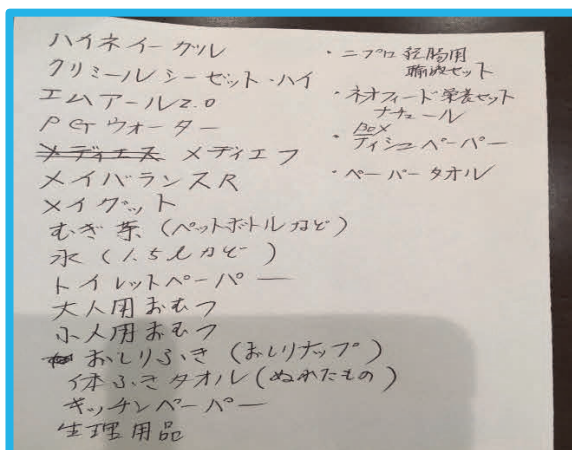 ハイネイーゲル
クリミール シーゼット・ハイ
エムアール2.0
PGウォーター
メディエス メディエフ
メイバランスR
メイグット
むぎ茶（ペットボトルなど）
水（1.5ℓなど）
トイレットペーパー
大人用おむつ
小人用おむつ
おしりふき（おしりナップ）
体ふきタオル（ぬれたもの）
キッチンペーパー
生理用品
・ニプロ経腸用
輸液セット
・ネオフィード栄養セット
ナチュール
・BOX
ティシュペーパー
・ペーパータオル